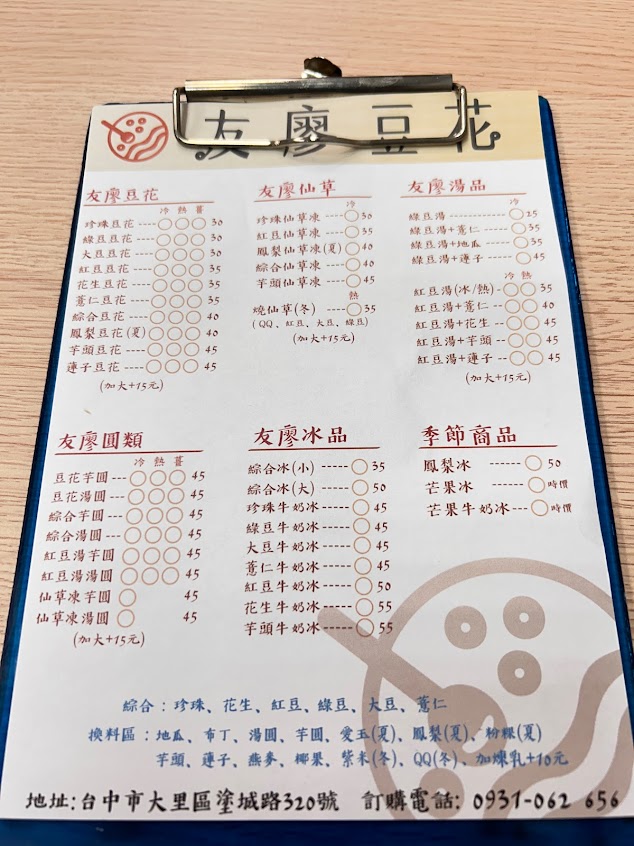 友廖豆花
友廖豆花
冷 熱 薑
珍珠豆花 ---- ○○○ 30
綠豆豆花 ---- ○○○ 30
大豆豆花 ---- ○○○ 30
紅豆豆花 ---- ○○○ 35
花生豆花 ---- ○○○ 35
薏仁豆花 ---- ○○○ 35
綜合豆花 ---- ○○○ 40
鳳梨豆花(夏) ○○○ 40
芋頭豆花 ---- ○○○ 45
蓮子豆花 ---- ○○○ 45
(加大+15元)
友廖仙草
冷
珍珠仙草凍 ---- ○ 30
紅豆仙草凍 ---- ○ 35
鳳梨仙草凍(夏) ○ 40
綜合仙草凍 ---- ○ 40
芋頭仙草凍 ---- ○ 45
熱
燒仙草(冬) ---- ○ 35
(QQ、紅豆、大豆、綠豆)
(加大+15元)
友廖湯品
冷
綠豆湯 --------- ○ 25
綠豆湯+薏仁 ---- ○ 35
綠豆湯+地瓜 ---- ○ 35
綠豆湯+蓮子 ---- ○ 45
冷 熱
紅豆湯(冰/熱) - ○○ 35
紅豆湯+薏仁 -- ○○ 40
紅豆湯+花生 -- ○○ 45
紅豆湯+芋頭 -- ○○ 45
紅豆湯+蓮子 -- ○○ 45
(加大+15元)
友廖圓類
冷 熱 薑
豆花芋圓 --- ○○○ 45
豆花湯圓 --- ○○○ 45
綜合芋圓 --- ○○○ 45
綜合湯圓 --- ○○○ 45
紅豆湯芋圓 ○○○ 45
紅豆湯湯圓 ○○○ 45
仙草凍芋圓 ○ 45
仙草凍湯圓 ○ 45
(加大+15元)
友廖冰品
綜合冰(小) ----- ○ 35
綜合冰(大) ----- ○ 50
珍珠牛奶冰 ----- ○ 45
綠豆牛奶冰 ----- ○ 45
大豆牛奶冰 ----- ○ 45
薏仁牛奶冰 ----- ○ 45
紅豆牛奶冰 ----- ○ 50
花生牛奶冰 ----- ○ 55
芋頭牛奶冰 ----- ○ 55
季節商品
鳳梨冰 ------- ○ 50
芒果冰 ------- ○ 時價
芒果牛奶冰 --- ○ 時價
綜合：珍珠、花生、紅豆、綠豆、大豆、薏仁
換料區：地瓜、布丁、湯圓、芋圓、愛玉(夏)、鳳梨(夏)、粉粿(夏)
芋頭、蓮子、燕麥、椰果、紫米(冬)、QQ(冬)、加煉乳+10元
地址:台中市大里區塗城路320號 訂購電話: 0931-062 656